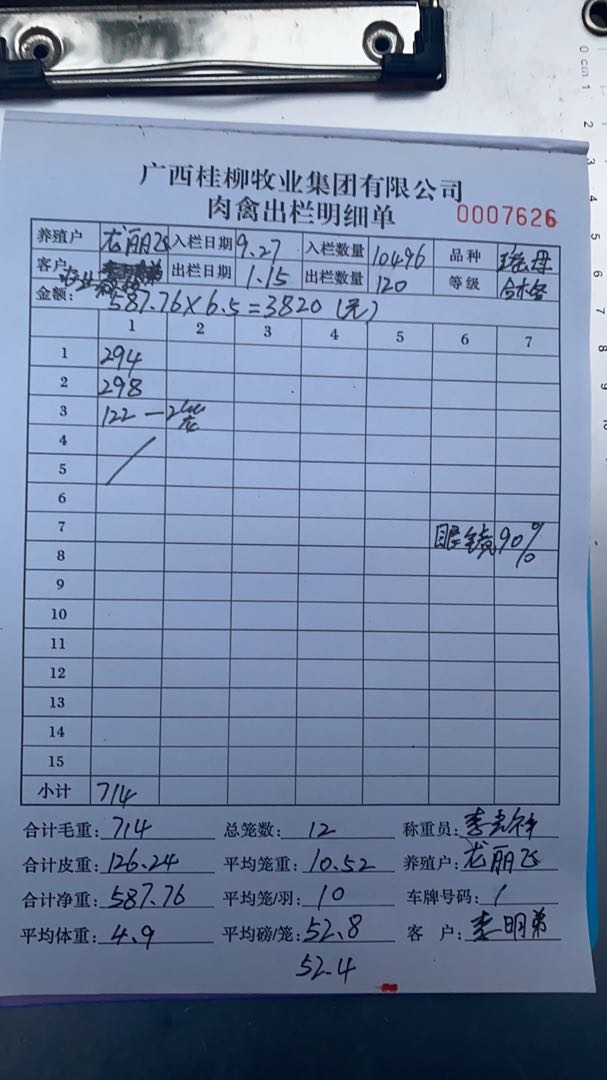 广西桂柳牧业集团有限公司
肉禽出栏明细单 0007626
养殖户 龙丽飞 入栏日期 9.27 入栏数量 10496 品种
客户 出栏日期 1.15 出栏数量 120 等级 合格
金额: 587.76×6.5=3820(元)
1 2 3 4 5 6 7
1 294
2 298
3 122 —2
4
5
6
7 眼镜90%
8
9
10
11
12
13
14
15
小计 714
合计毛重: 714 总笼数: 12 称重员:
合计皮重: 126.24 平均笼重: 10.52 养殖户: 龙丽飞
合计净重: 587.76 平均笼/羽: 10 车牌号码: /
平均体重: 4.9 平均磅/笼: 52.8 客 户: 李明弟
52.4
0 cm 1
2
3
4
5
6
7
8
9